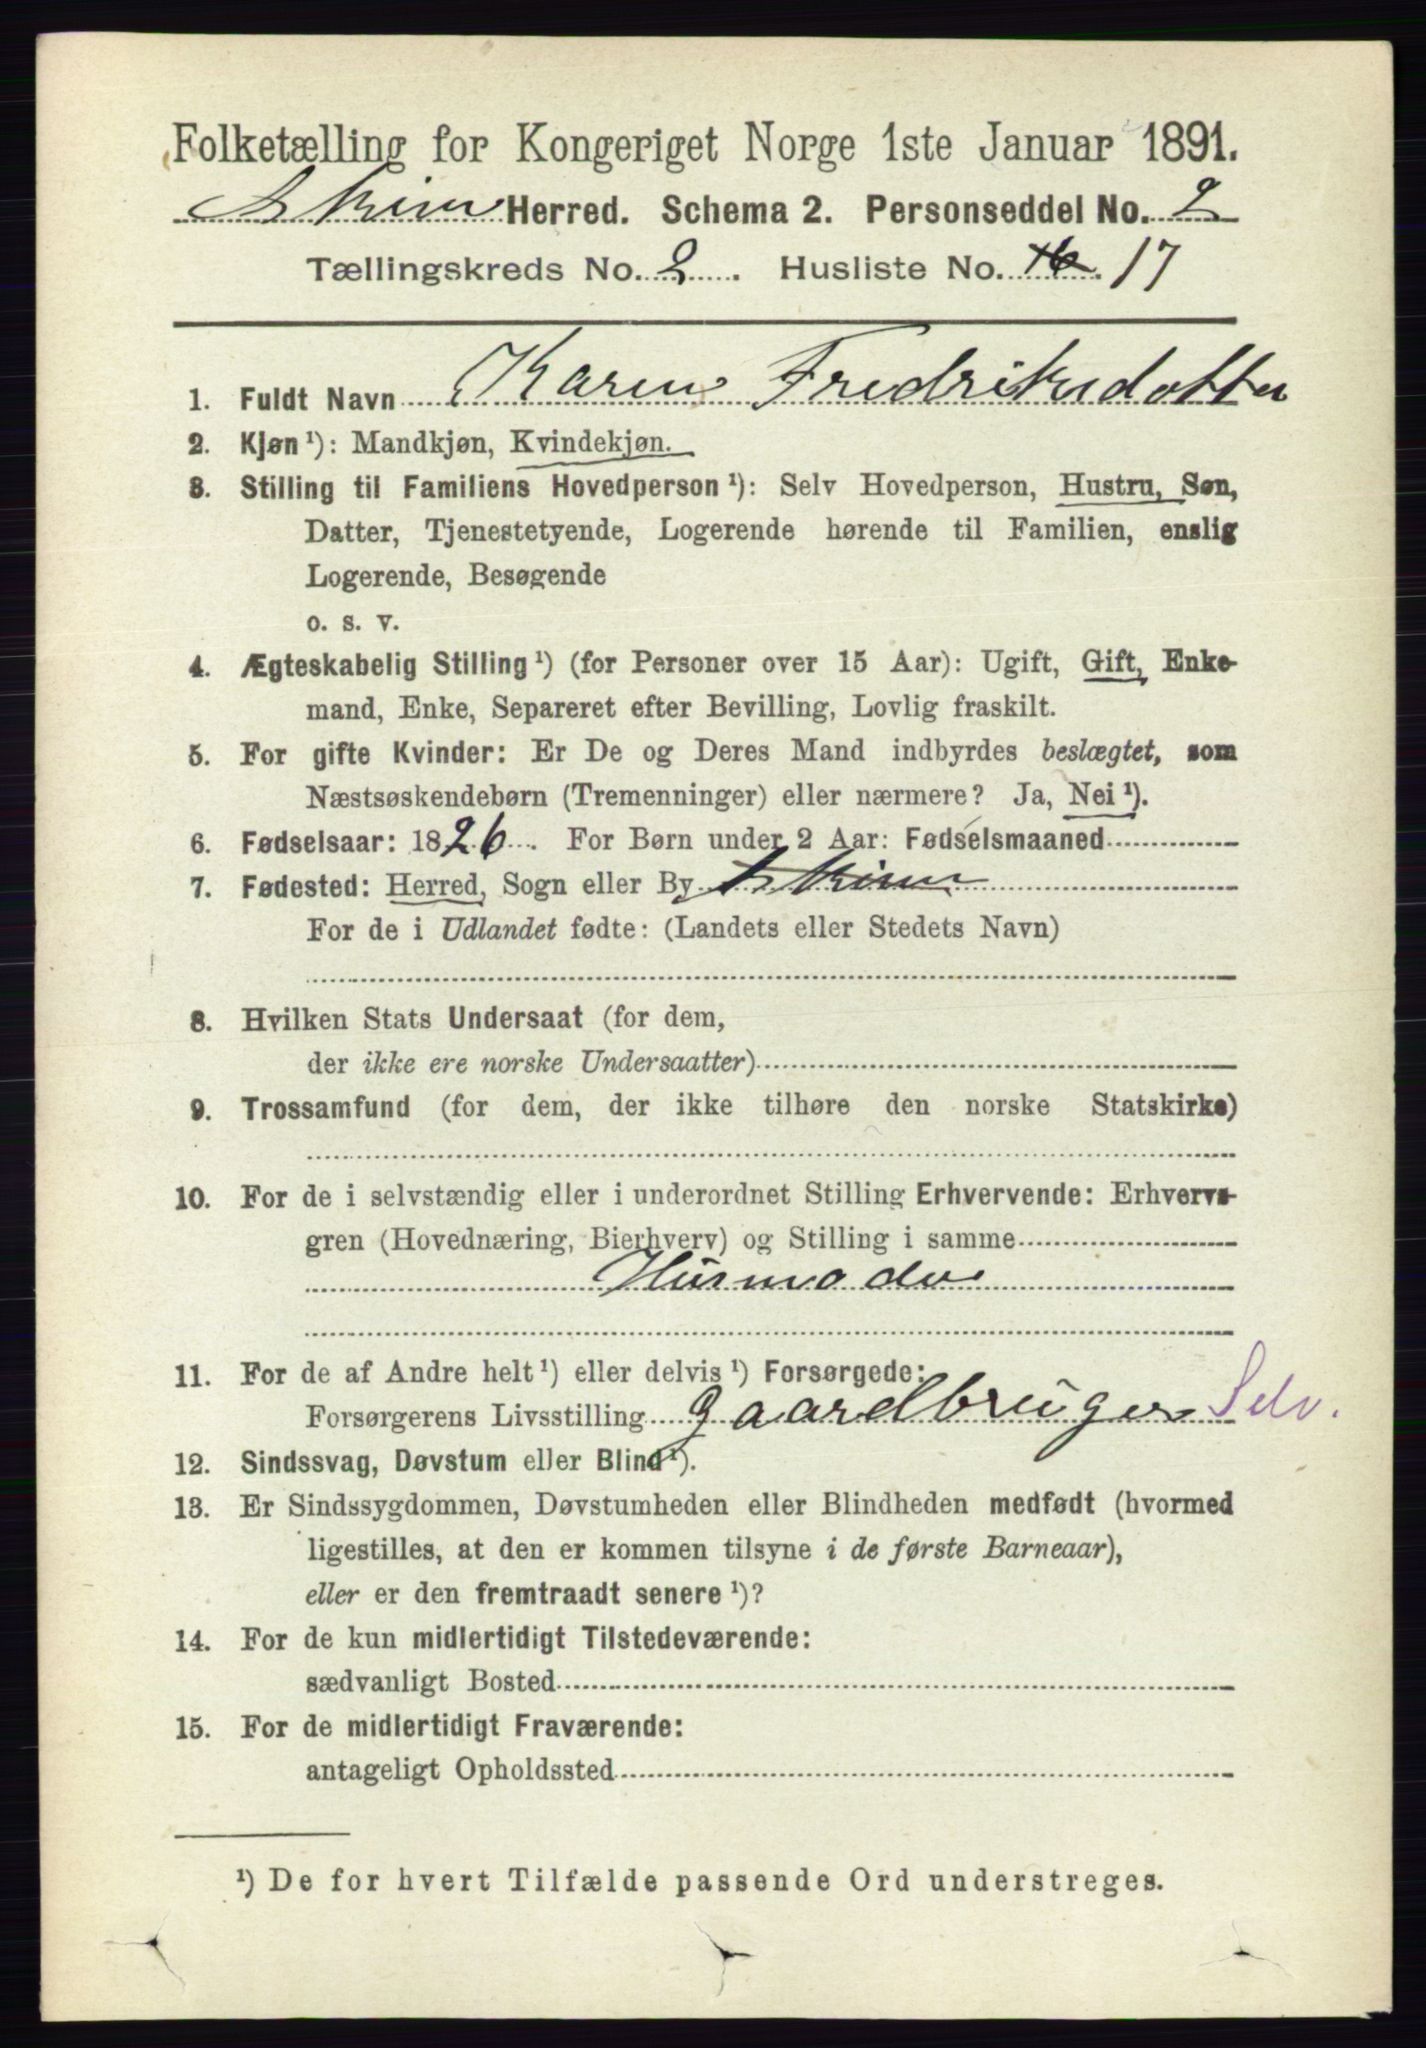 Folketælling for Kongeriget Norge 1ste Januar 1891.
Askim Herred. Schema 2. Personseddel No. 2
Tællingskreds No. 2. Husliste No. 16. 17
1. Fuldt Navn Karen Fredriksdotter
2. Kjøn¹): Mandkjøn, Kvindekjøn.
3. Stilling til Familiens Hovedperson¹): Selv Hovedperson, Hustru, Søn,
Datter, Tjenestetyende, Logerende hørende til Familien, enslig
Logerende, Besøgende
o. s. v.
4. Ægteskabelig Stilling¹) (for Personer over 15 Aar): Ugift, Gift, Enke-
mand, Enke, Separeret efter Bevilling, Lovlig fraskilt.
5. For gifte Kvinder: Er De og Deres Mand indbyrdes beslægtet, som
Næstsøskendebørn (Tremenninger) eller nærmere? Ja, Nei¹).
6. Fødselsaar: 1826. For Børn under 2 Aar: Fødselsmaaned
7. Fødested: Herred, Sogn eller By Askim
For de i Udlandet fødte: (Landets eller Stedets Navn)
8. Hvilken Stats Undersaat (for dem,
der ikke ere norske Undersaatter)
9. Trossamfund (for dem, der ikke tilhøre den norske Statskirke)
10. For de i selvstændig eller i underordnet Stilling Erhvervende: Erhvervs-
gren (Hovednæring, Bierhverv) og Stilling i samme
Husmoder
11. For de af Andre helt¹) eller delvis¹) Forsørgede:
Forsørgerens Livsstilling gaardbruger Selv.
12. Sindssvag, Døvstum eller Blind¹).
13. Er Sindssygdommen, Døvstumheden eller Blindheden medfødt (hvormed
ligestilles, at den er kommen tilsyne i de første Barneaar),
eller er den fremtraadt senere¹)?
14. For de kun midlertidigt Tilstedeværende:
sædvanligt Bosted
15. For de midlertidigt Fraværende:
antageligt Opholdssted
¹) De for hvert Tilfælde passende Ord understreges.